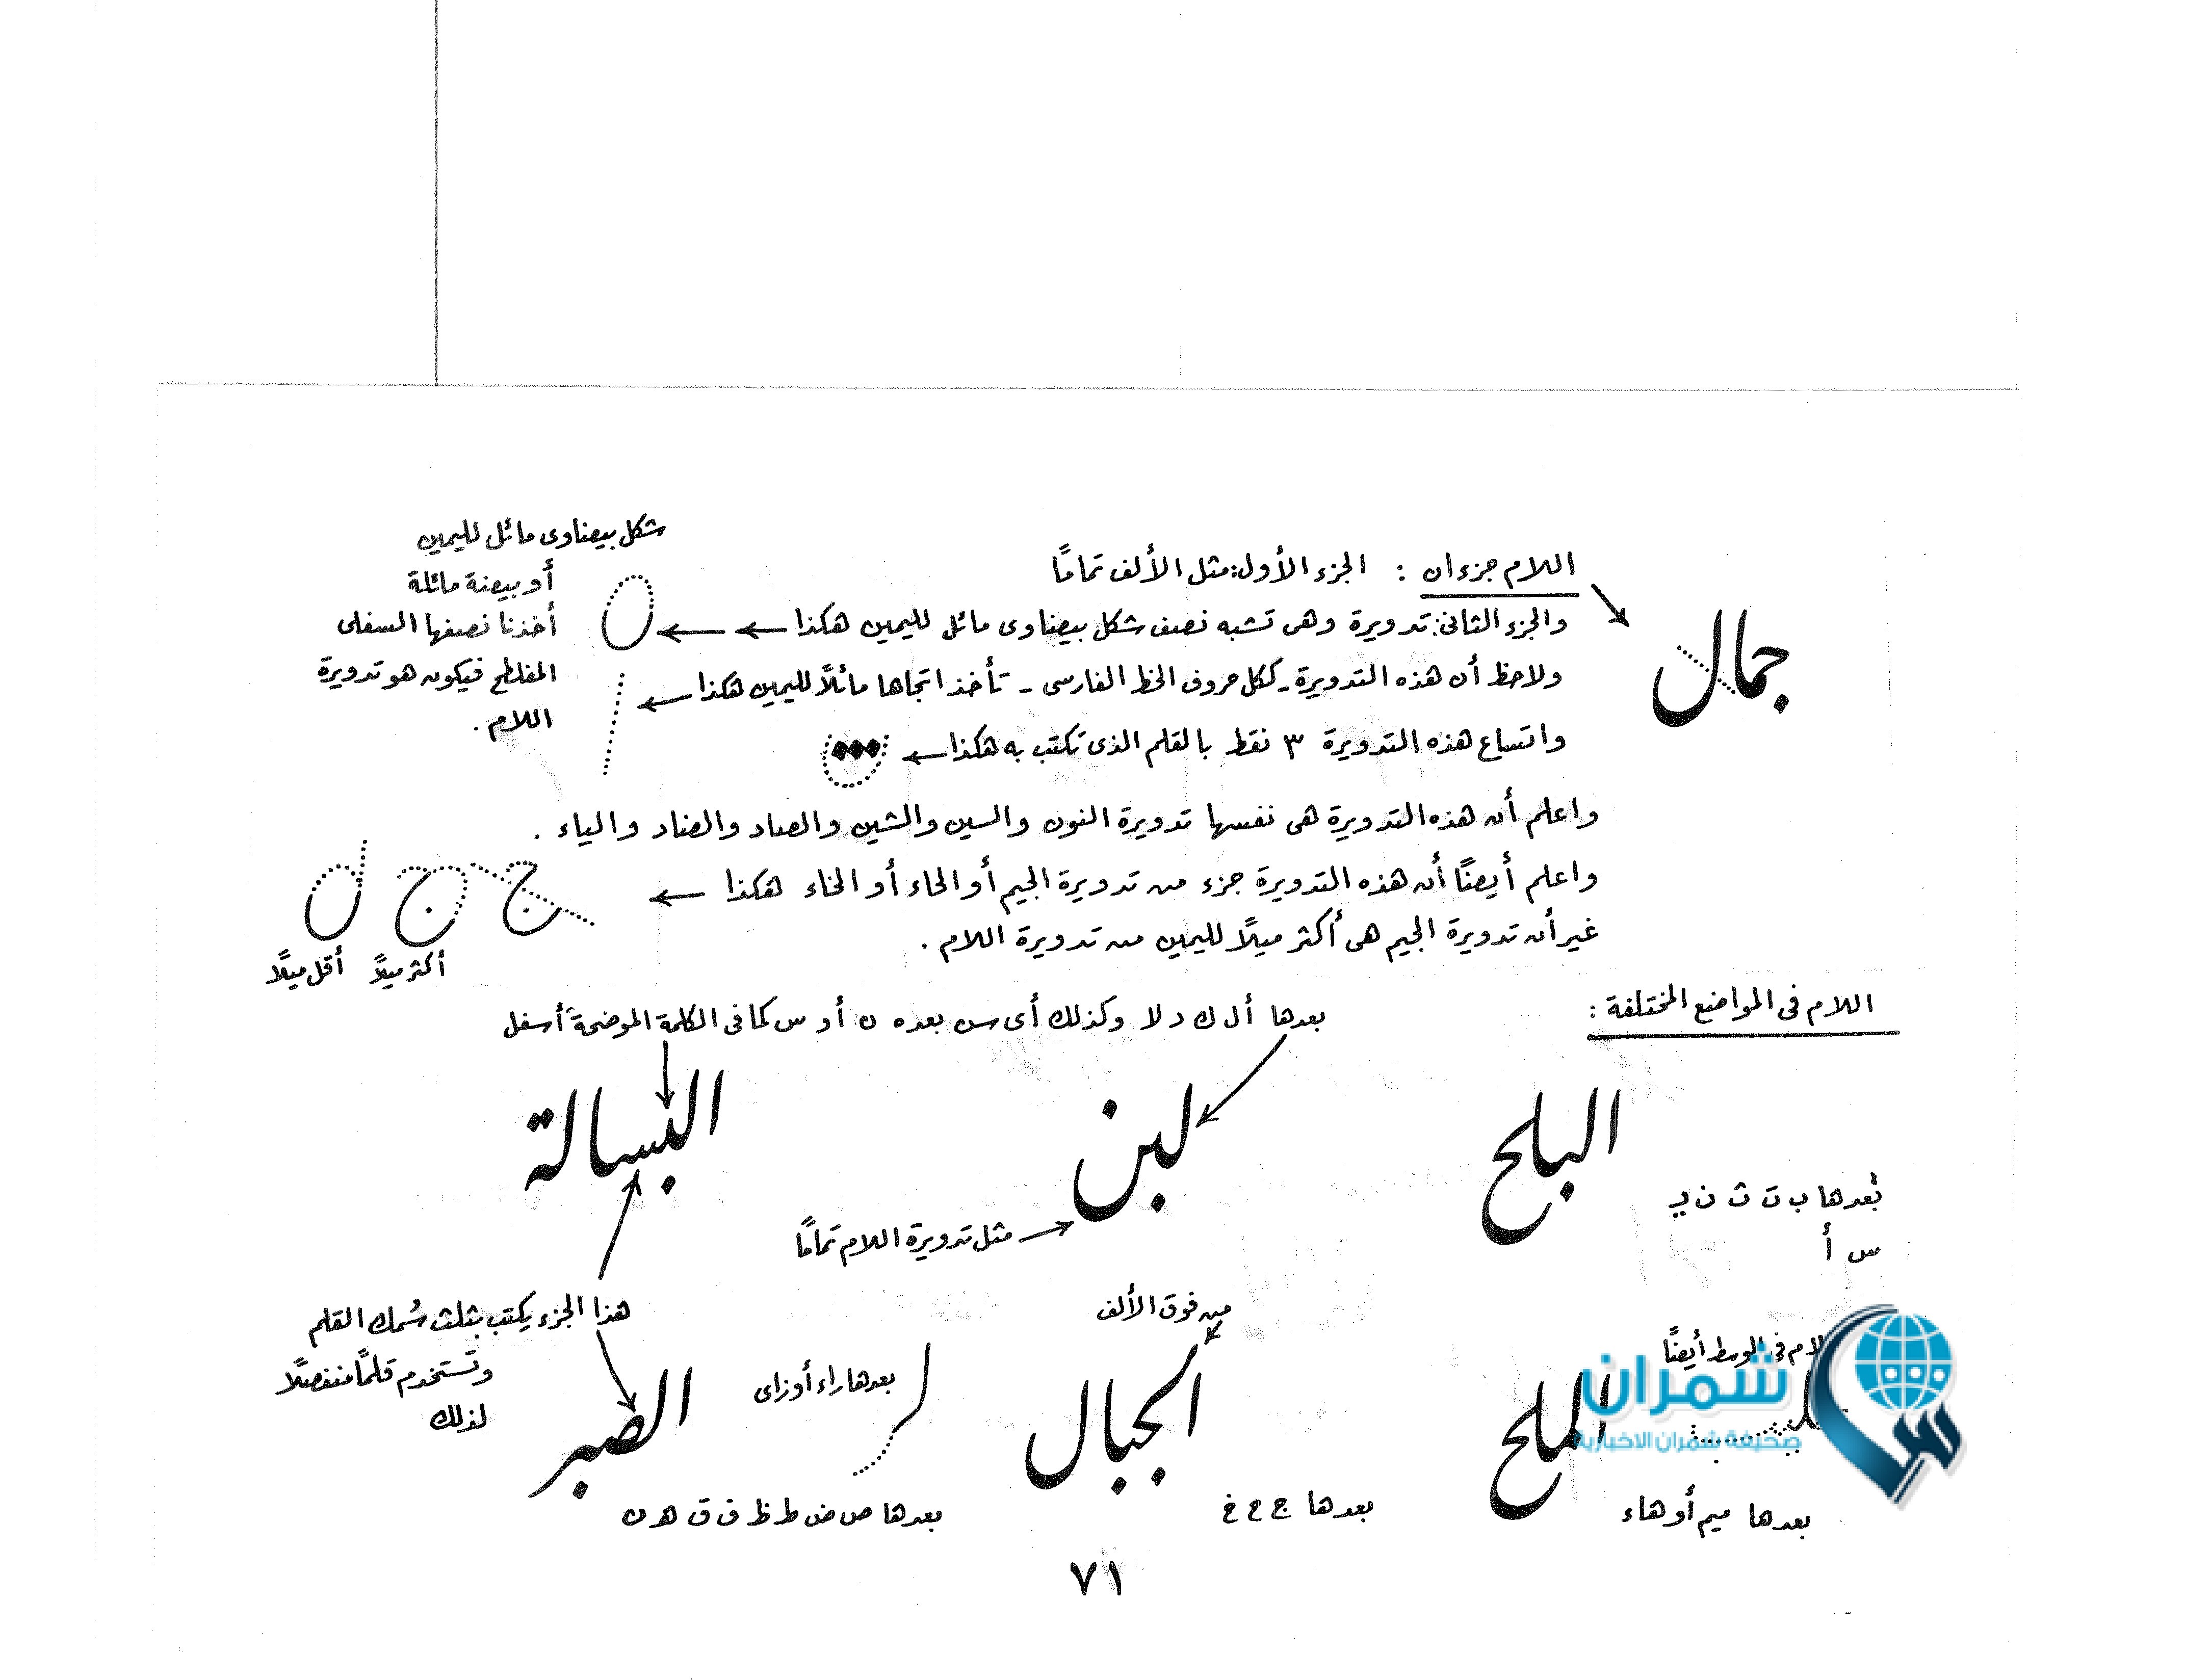 اللام جزءان : الجزء الأول: مثل الألف تمامًا
والجزء الثانى: تدويرة وهى تشبه نصف شكل بيضاوى مائل لليمين هكذا
ولاحظ أن هذه التدويرة - ككل حروف الخط الفارسى - تأخذ اتجاها مائلاً لليمين هكذا
واتساع هذه التدويرة ٣ نقط بالقلم الذى تكتب به هكذا
جمال
شكل بيضاوى مائل لليمين
أو بيضة مائلة
أخذنا نصفها السفلى
المفلطح فيكون هو تدويرة
اللام .
واعلم أن هذه التدويرة هى نفسها تدويرة النون والسين والشين والصاد والضاد والياء .
واعلم أيضًا أن هذه التدويرة جزء من تدويرة الجيم أو الحاء أو الخاء هكذا
غير أن تدويرة الجيم هى أكثر ميلاً لليمين من تدويرة اللام .
ج ج ل
أكثر ميلاً أقل ميلاً
اللام فى المواضع المختلفة :
بعدها أ ل ك د لا وكذلك أى سن بعده ن أو س كما فى الكلمة الموضحة أسفل
البلح
لبن
البسالة
بعدها ب ت ث ن ي
س أ
مثل تدويرة اللام تمامًا
هذا الجزء يكتب بثلث سُمك القلم
وتستخدم قلمًا منفصلاً
لذلك
من فوق الألف
فى الوسط أيضًا
الملح
الجبال
بعدها راء أو زاى
الصبر
بعدها ميم أو هاء
بعدها ج ح خ
بعدها ص ض ط ظ ف ق هـ ن
شمران
صحيفة شمران الاخبارية
٧١